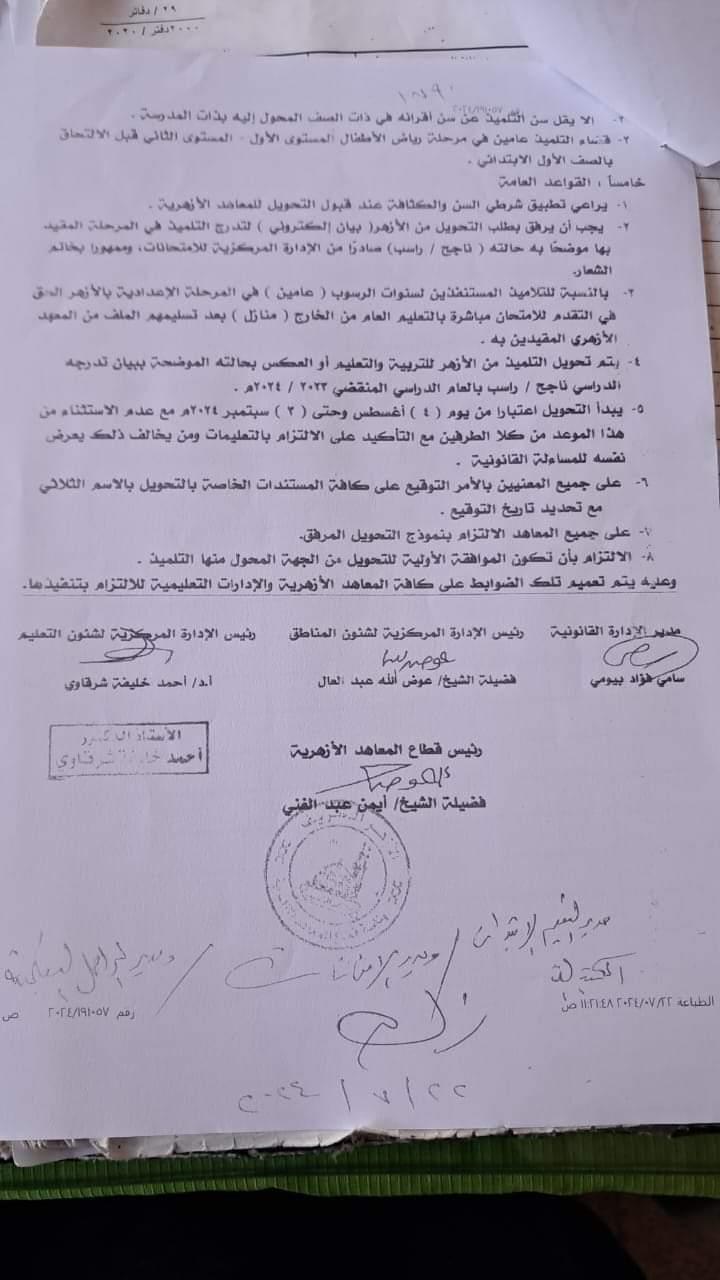 ٢٩ / دفاتر
٢٠٠٠دفتر / ٢٠٢٠
٢٠٢٤/١٩١٠٥٧
٢- الا يقل سن التلميذ عن سن أقرانه في ذات الصف المحول إليه بذات المدرسة .
٣- قضاء التلميذ عامين في مرحلة رياض الأطفال المستوى الأول - المستوى الثاني قبل الالتحاق
بالصف الأول الابتدائي .
خامساً : القواعد العامة
١- يراعي تطبيق شرطي السن والكثافة عند قبول التحويل للمعاهد الأزهرية .
٢- يجب أن يرفق بطلب التحويل من الأزهر( بيان إلكتروني ) لتدرج التلميذ في المرحلة المقيد
بها موضحًا به حالته ( ناجح / راسب) صادرًا من الإدارة المركزية للامتحانات، وممهورا بخاتم
الشعار.
٣- بالنسبة للتلاميذ المستنفذين لسنوات الرسوب ( عامين ) في المرحلة الإعدادية بالأزهر الحق
في التقدم للامتحان مباشرة بالتعليم العام من الخارج ( منازل ) بعد تسليمهم الملف من المعهد
الأزهري المقيدين به .
٤- يتم تحويل التلميذ من الأزهر للتربية والتعليم أو العكس بحالته الموضحة ببيان تدرجه
الدراسي ناجح / راسب بالعام الدراسي المنقضي ٢٠٢٣ / ٢٠٢٤م .
٥- يبدأ التحويل اعتبارا من يوم ( ٤ ) أغسطس وحتى ( ٣ ) سبتمبر ٢٠٢٤م مع عدم الاستثناء من
هذا الموعد من كلا الطرفين مع التأكيد على الالتزام بالتعليمات ومن يخالف ذلك يعرض
نفسه للمساءلة القانونية .
٦- على جميع المعنيين بالأمر التوقيع على كافة المستندات الخاصة بالتحويل بالاسم الثلاثي
مع تحديد تاريخ التوقيع .
٧- على جميع المعاهد الالتزام بنموذج التحويل المرفق.
٨- الالتزام بأن تكون الموافقة الأولية للتحويل من الجهة المحول منها التلميذ .
وعليه يتم تعميم تلك الضوابط على كافة المعاهد الأزهرية والإدارات التعليمية للالتزام بتنفيذها.
مدير الإدارة القانونية رئيس الإدارة المركزية لشئون المناطق رئيس الإدارة المركزية لشئون التعليم
سامي فؤاد بيومي فضيلة الشيخ/ عوض الله عبد العال أ.د/ أحمد خليفة شرقاوي
الأستاذ الدكتور
أحمد خليفة شرقاوي
رئيس قطاع المعاهد الأزهرية
فضيلة الشيخ/ أيمن عبد الغني
الأزهر الشريف
الطباعة ٢٠٢٤/٠٧/٢٢ ١١:٢١:٤٨ ص
رقم ٢٠٢٤/١٩١٠٥٧ ص
٢٢ / ٧ / ٢٠٢٤